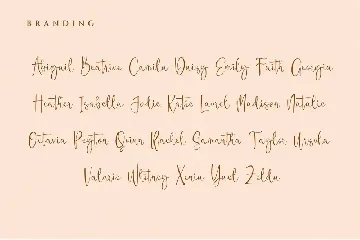 BRANDING
Abigail Beatrice Camila Daisy Emily Faith Georgia
Heather Isabella Jodie Katie Laurel Madison Natalie
Octavia Peyton Quinn Rachel Samantha Taylor Ursula
Valerie Whitney Xenia Yael Zelda